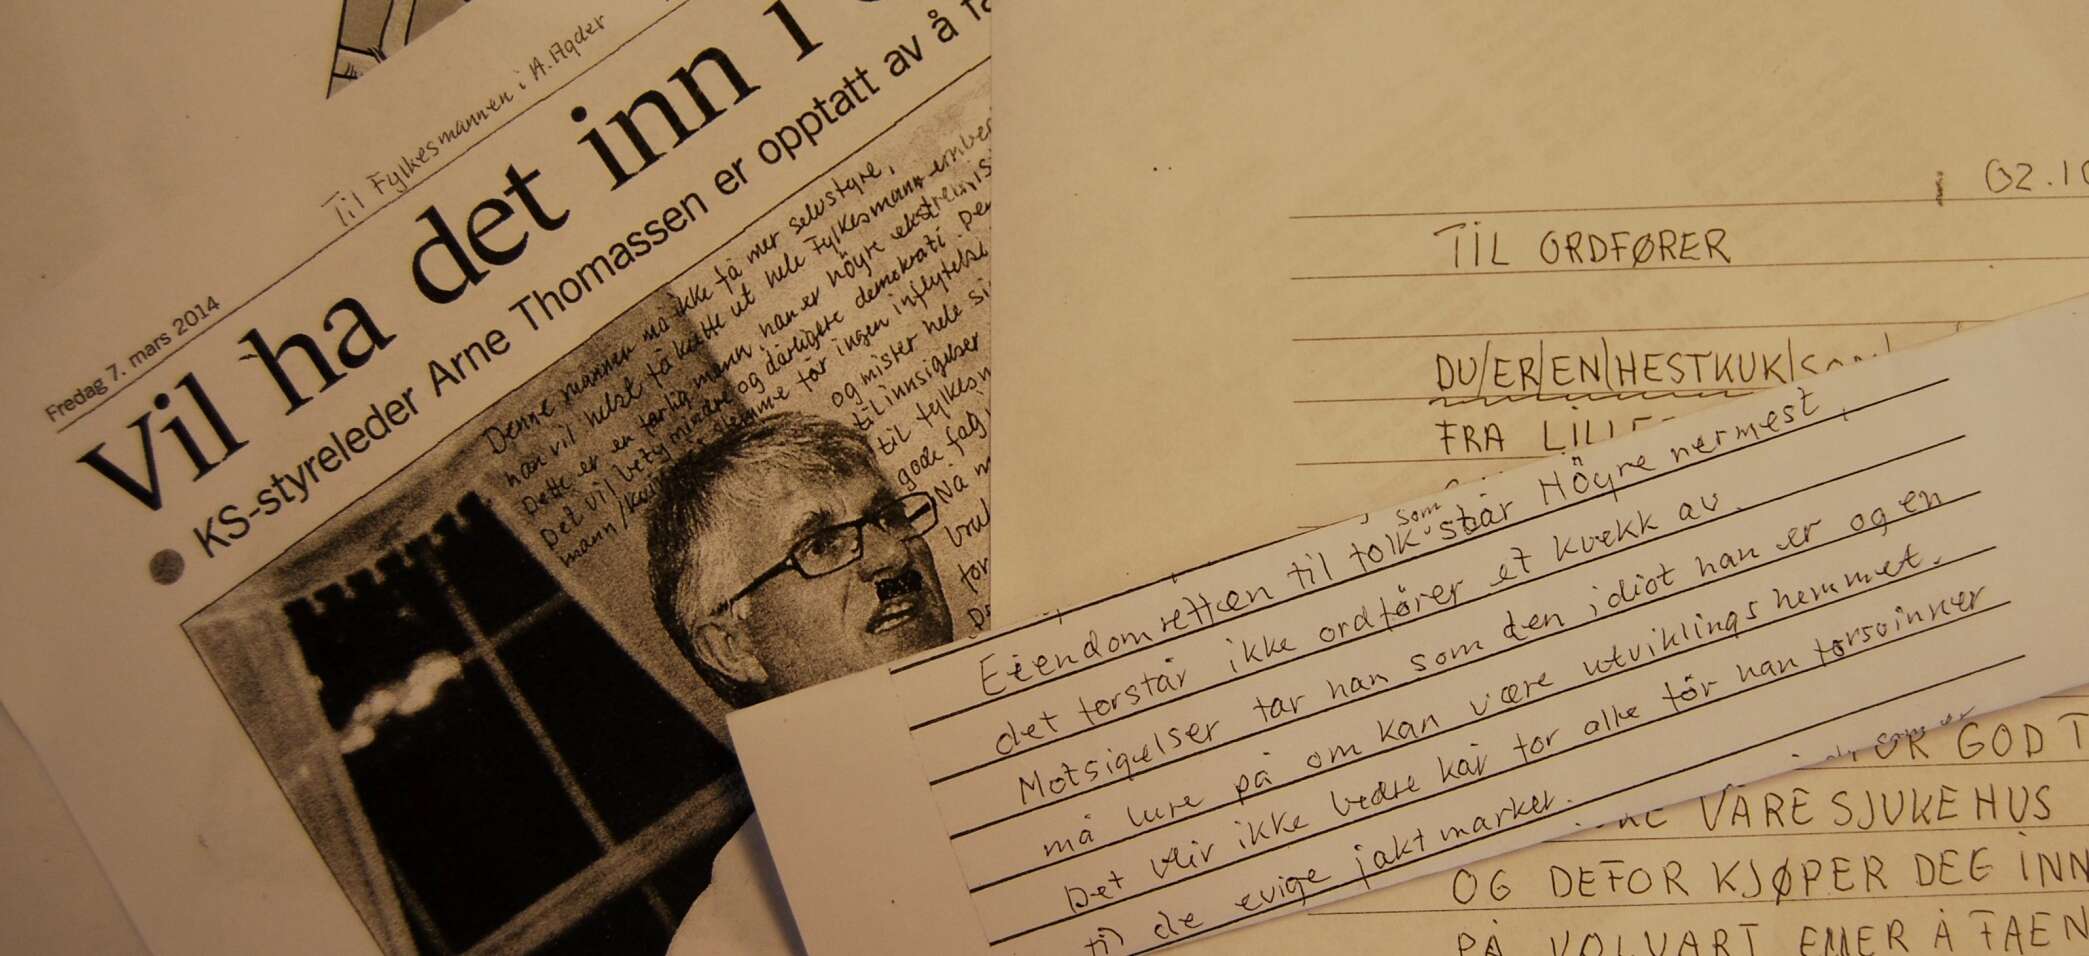 Til Fylkesmannen i A. Agder
Fredag 7. mars 2014
Vil ha det inn i
● KS-styreleder Arne Thomassen er opptatt av å
Denne mannen må ikke få mer selvstyre,
han vil helst få kutte ut hele Fylkesmann
Dette er en farlig mann han er höyre
Det vil bety mindre og dårligere demokrati.
mann/ stemme før ingen inflytelse
og mister hele
til innsigelser
til fylkes
gode fag
Nå
02.10
TIL ORDFØRER
DU/ER/EN/HESTKUK/
FRA
som
Eiendomretten til folk står Höyre nermest,
det forstår ikke ordfører et kvekk av.
Motsigelser tar han som den idiot han er og en
må lure på om kan være utviklingshemmet.
Det blir ikke bedre kår for alle før han forsvinner
til de evige jaktmarker.
GODT
VÅRE SJUKEHUS
OG DEFOR KJØPER DEG INN
PÅ VOLVART EMER Å FAEN